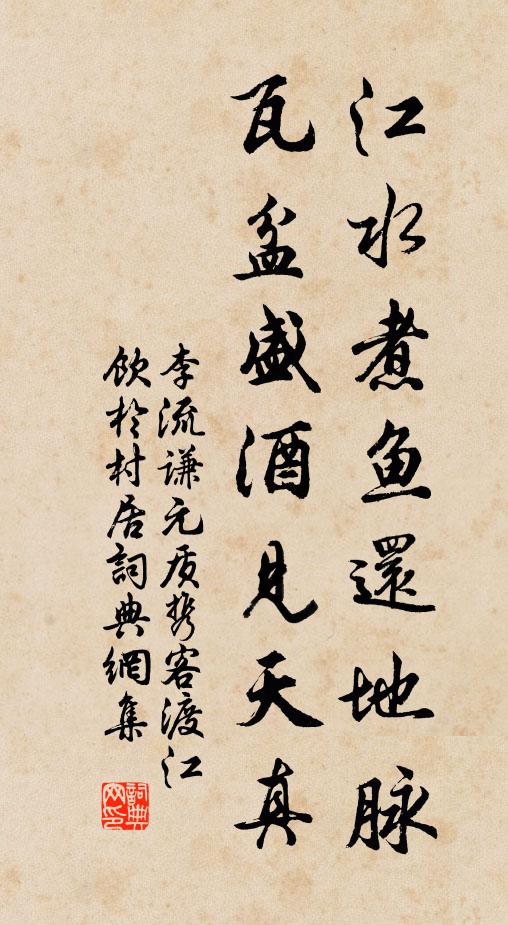 江水煮鱼還地脉
瓦盆盛酒見天真
李流謙元质携客渡江
飲於村居詞典網集
詞典網印